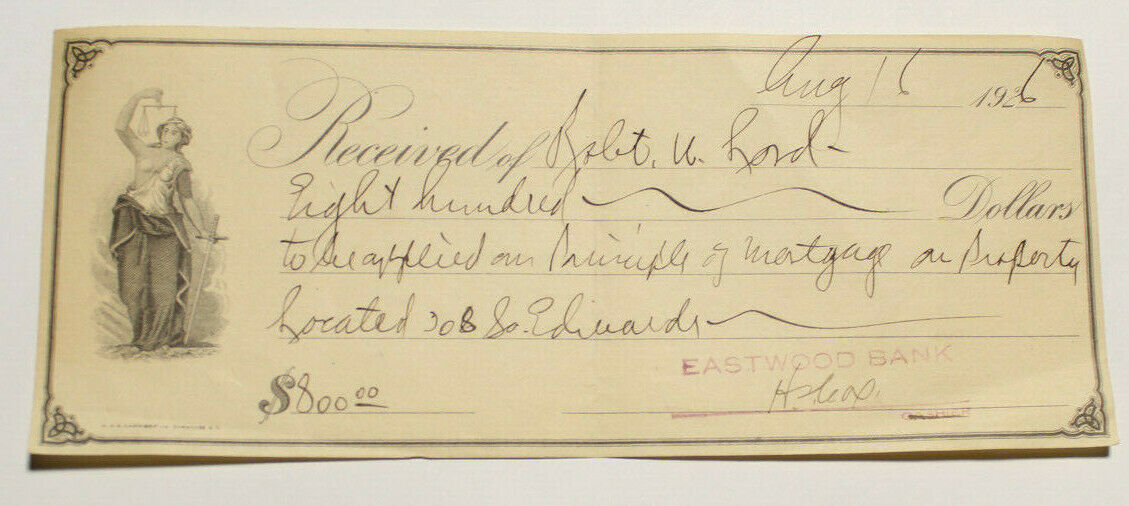 Aug 16 1926
Received of Robt. W. Lord
Eight hundred Dollars
to be applied on Principle of Mortgage on Property
Located 308 So. Edwards
EASTWOOD BANK
$800.00
CASHIER